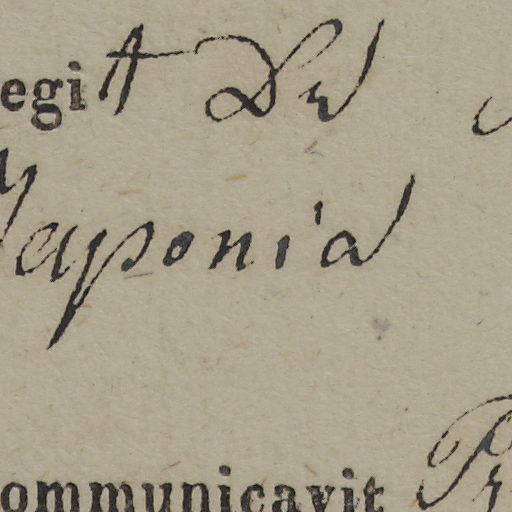 egit Dr
Japonia
ommunicavit Pr